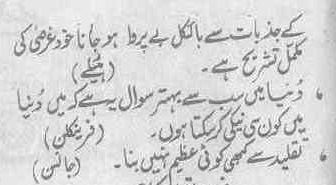 کے جذبات سے بالکل بے پروا ہو جانا خود غرضی کی
مکمل تشریح ہے۔ (ہکسلے)
، دُنیا میں سب سے بہتر سوال یہ ہے کہ میں دُنیا
میں کون سی نیکی کر سکتا ہوں۔ (فرینکلن)
، تقلید سے کبھی کوئی عظیم نہیں بنا۔ (جانسن)